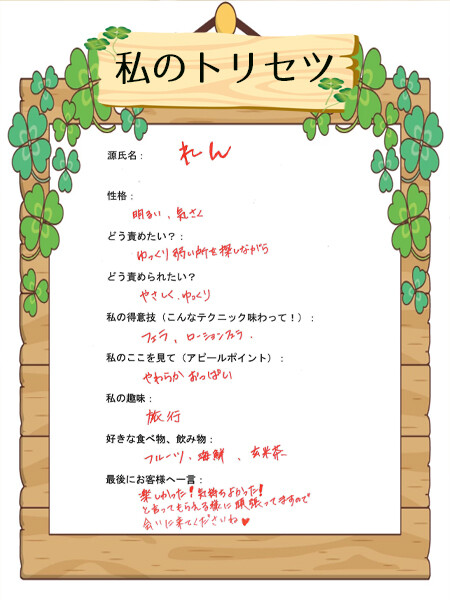 私のトリセツ
源氏名：
れん
性格：
明るい、気さく
どう責めたい？：
ゆっくり弱い所を探しながら
どう責められたい？
やさしく、ゆっくり
私の得意技（こんなテクニック味わって！）：
フェラ、ローションフェラ.
私のここを見て（アピールポイント）：
やわらかおっぱい
私の趣味：
旅行
好きな食べ物、飲み物：
フルーツ、海鮮、玄米茶
最後にお客様へ一言：
楽しかった！気持ちよかった！
と言ってもらえる様に頑張ってますので
会いに来てくださいね♥